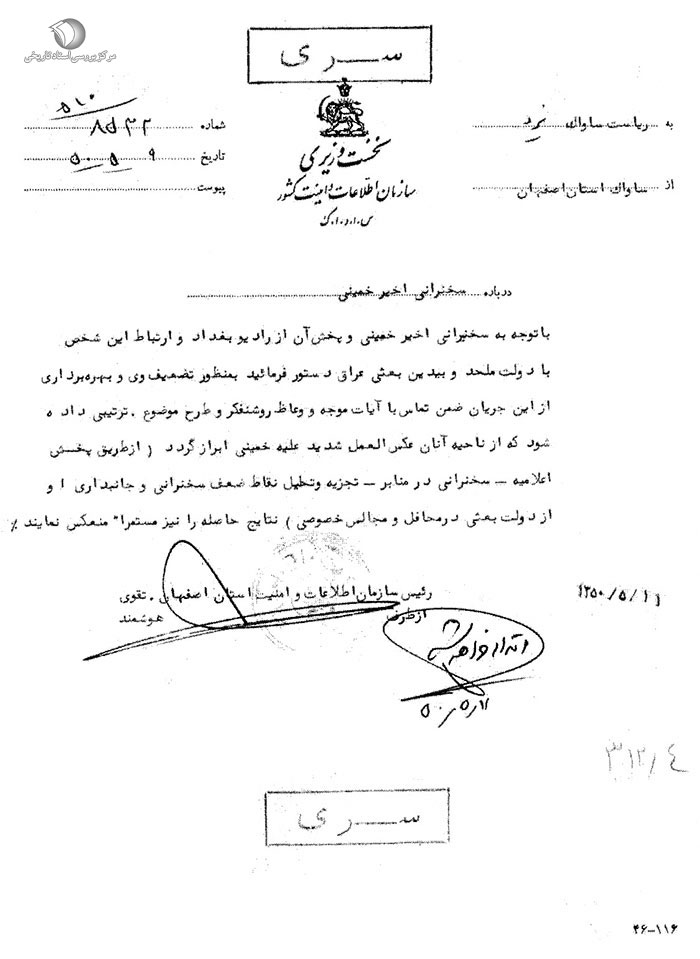 مرکز بررسی اسناد تاریخی
سری
به ریاست ساواک یزد
از ساواک استان اصفهان
نخست وزیری
سازمان اطلاعات و امنیت کشور
س.ا.و.ا.ک
۵۱۰
شماره ۸۵۳۲
تاریخ ۹ ۵ ۵۰
پیوست
درباره سخنرانی اخیر خمینی
باتوجه به سخنرانی اخیر خمینی و پخش آن از رادیو بغداد و ارتباط این شخص
با دولت ملحد و بیدین بعثی عراق دستور فرمائید بمنظور تضعیف وی و بهره برداری
از این جریان ضمن تماس با آیات موجه و وعاظ روشنفکر و طرح موضوع . ترتیبی داده
شود که از ناحیه آنان عکس العمل شدید علیه خمینی ابراز گردد ( از طریق پخش
اعلامیه – سخنرانی در منابر – تجزیه وتحلیل نقاط ضعف سخنرانی و جانبداری او
از دولت بعثی در محافل و مجالس خصوصی ) نتایج حاصله را نیز مستمرا" منعکس نمایند %
رئیس سازمان اطلاعات و امنیت استان اصفهان . تقوی
از طرف هوشمند
۱۳۵۰/۵/۱۱
۵۰/۵/۱۱
۳۱۲/۴
سری
۴۶-۱۱۶